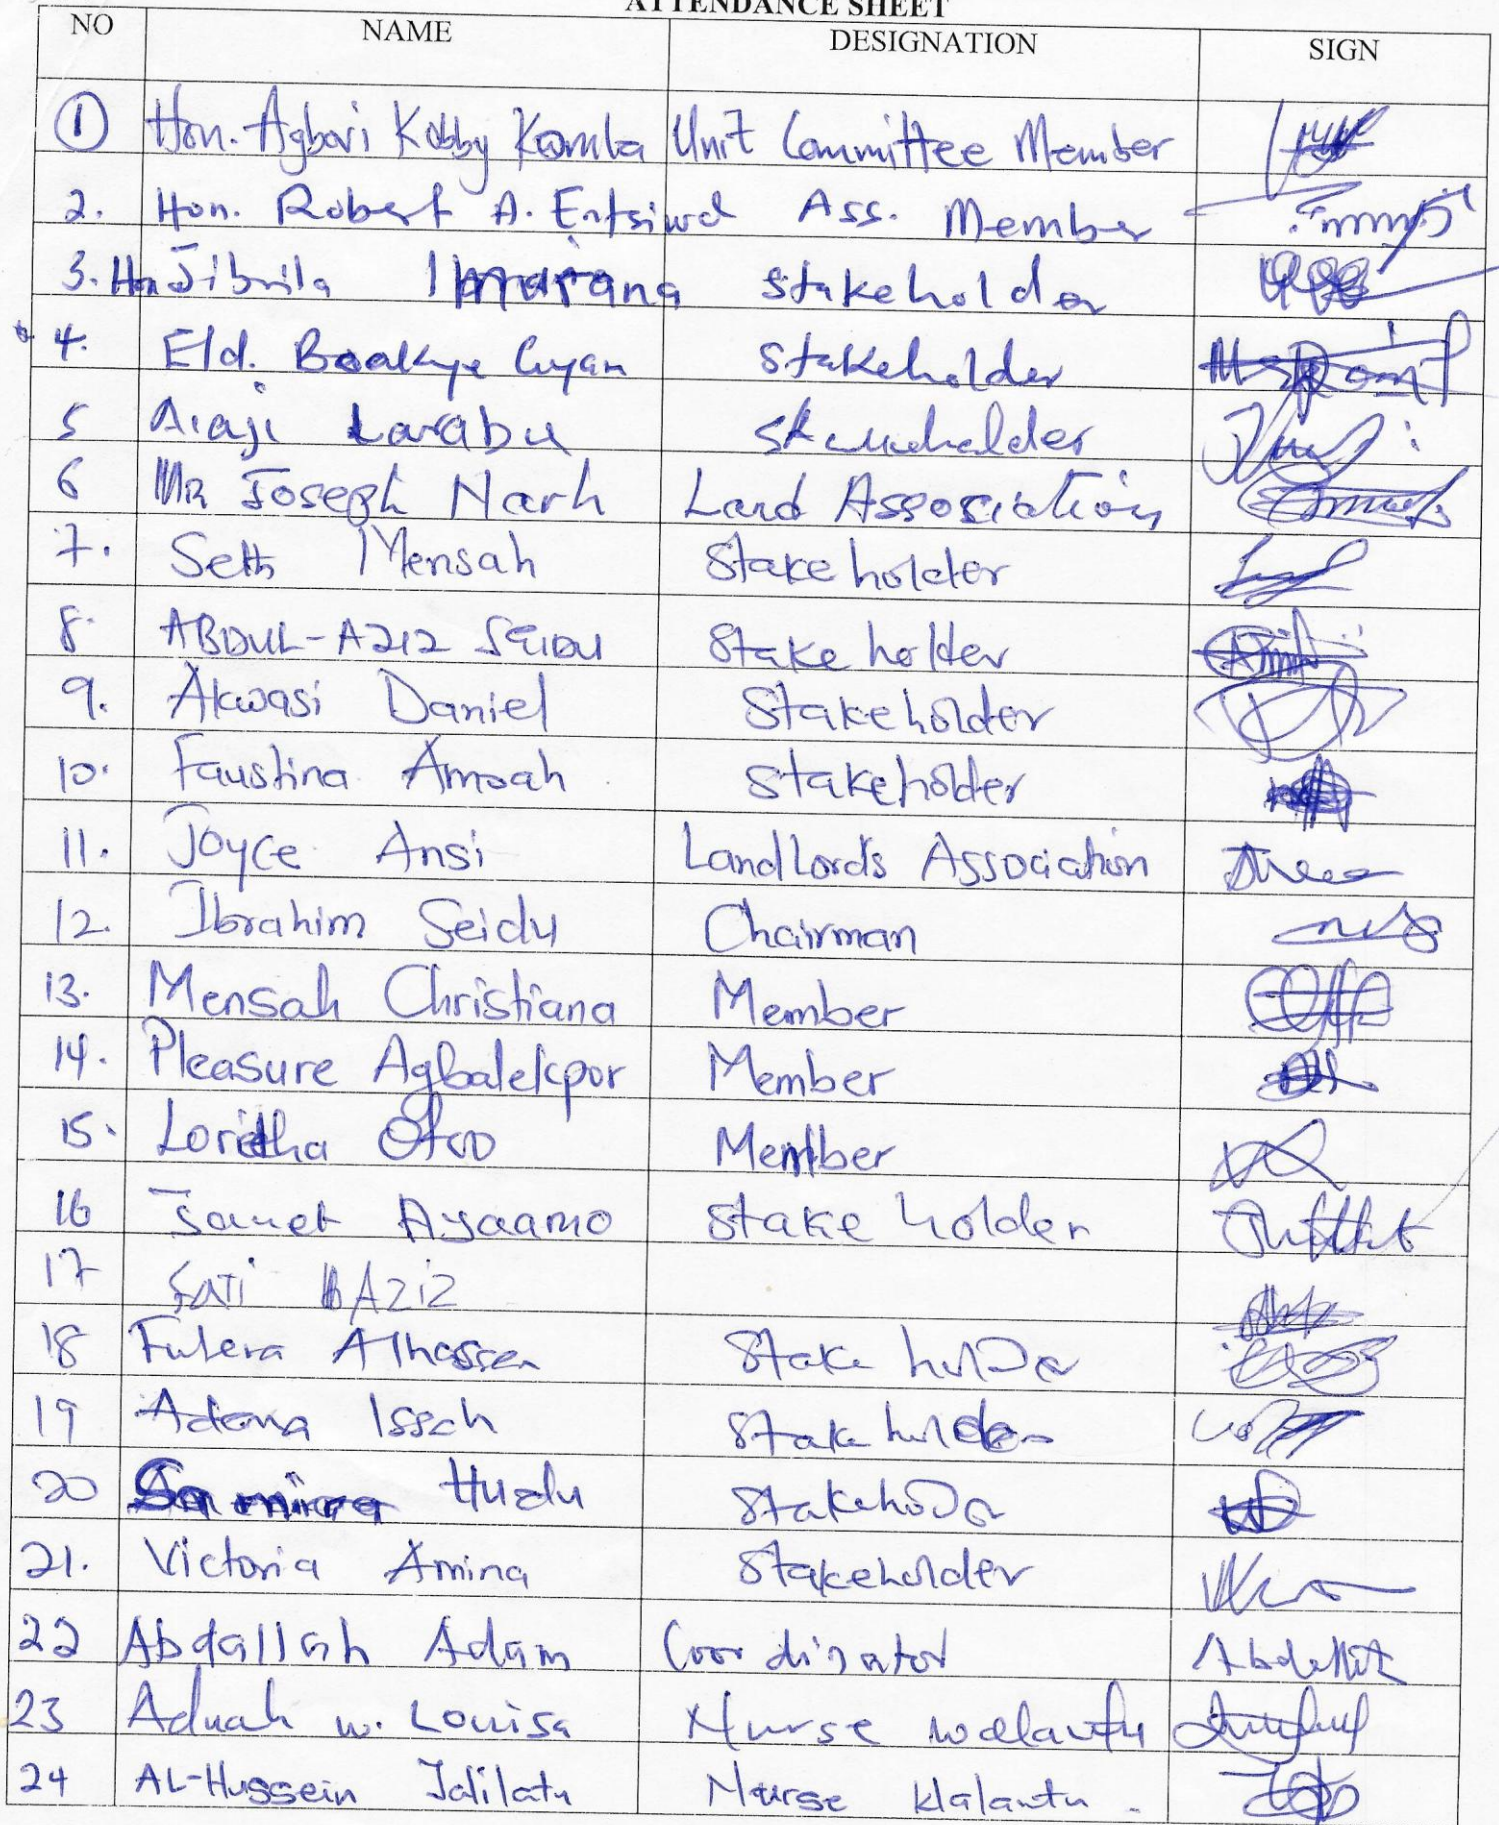 ATTENDANCE SHEET
NO NAME DESIGNATION SIGN
1 Hon. Agbavi Kobby Komla Unit Committee Member
2. Hon. Robert A. Entsiwd Ass. Member
3. Hon Jibrila Imurana Stakeholder
4. Eld. Boakye Gyan Stakeholder
5 Alaji Larabu
6 Mr Joseph Narh Land Association
7. Seth Mensah Stakeholder
8. ABDUL-AZIZ SEIDU Stake holder
9. Akwasi Daniel Stakeholder
10. Faustina Amoah Stakeholder
11. Joyce Ansi LandLords Association
12. Ibrahim Seidu Chairman
13. Mensah Christiana Member
14. Pleasure Agbalekpor Member
15. Loretha Otoo Member
16 Janet Ayaamo Stake holder
17 FATI AZIZ
18 Fulera Alhassan Stake holder
19 Adama Issah Stake holder
20 Samira Hudu Stakeholder
21. Victoria Amina Stakeholder
22 Abdallah Adam Coordinator
23 Aduah w. Louisa Nurse walantu
24 AL-Hussein Jalilatu Nurse Walantu.